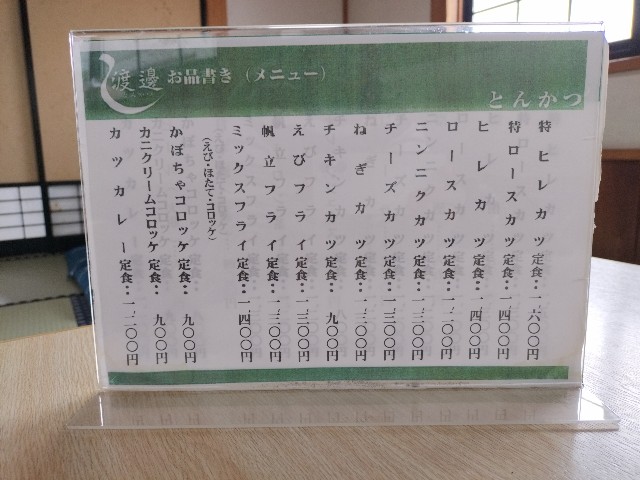 渡邊 お品書き (メニュー)
とんかつ
特ヒレカツ定食‥一、六〇〇円
特ロースカツ定食‥一、四〇〇円
ヒレカツ定食‥一、四〇〇円
ロースカツ定食‥一、二〇〇円
ニンニクカツ定食‥一、三〇〇円
チーズカツ定食‥一、三〇〇円
ねぎカツ定食‥一、三〇〇円
チキンカツ定食‥九〇〇円
えびフライ定食‥一、三〇〇円
帆立フライ定食‥一、三〇〇円
ミックスフライ定食‥一、四〇〇円
(えび・ほたて・コロッケ)
かぼちゃコロッケ定食‥九〇〇円
カニクリームコロッケ定食‥九〇〇円
カツカレー定食‥一、二〇〇円